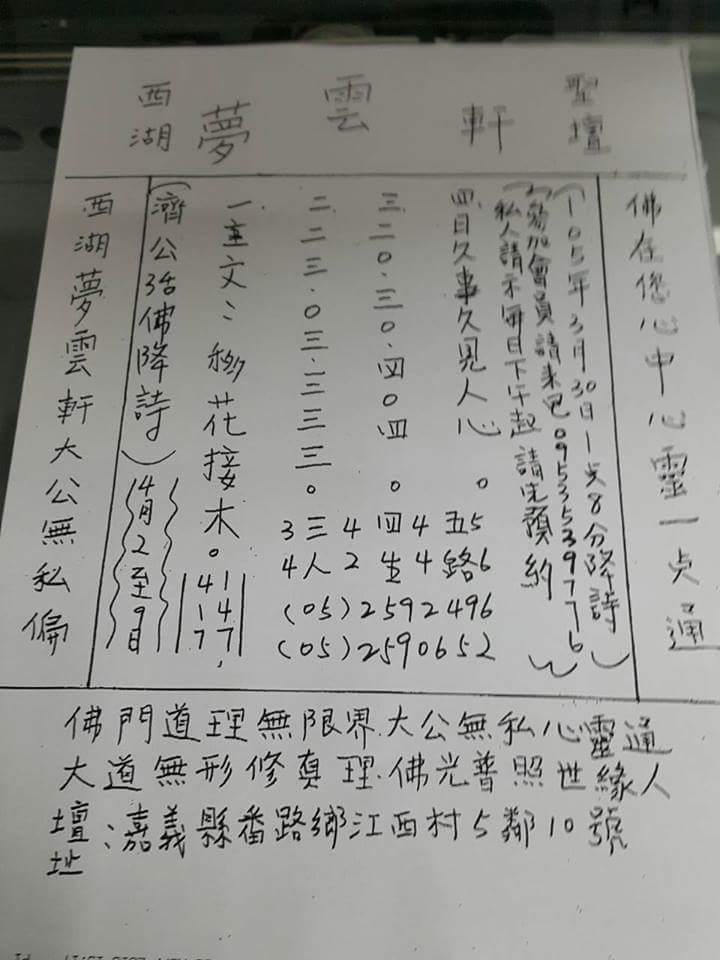 西湖夢雲軒聖壇
佛在您心中心靈一点通
(105年3月30日1点8分降詩)
參加會員請來電0953539776
私人請示每日下午起 請先預約
四.日久事久見人心。五5路6
三.二0.三0.四0四。4四4生4
二.二三.0三.二三三三。3三人2
一.主文:移花接木。41 14 77,
(05)2592496
(05)2590652
(濟公活佛降詩)4月2至9日
西湖夢雲軒大公無私偏
佛門道理無限界.大公無私心靈通
大道無形修真理.佛光普照世緣人
壇址:嘉義縣番路鄉江西村5鄰10號